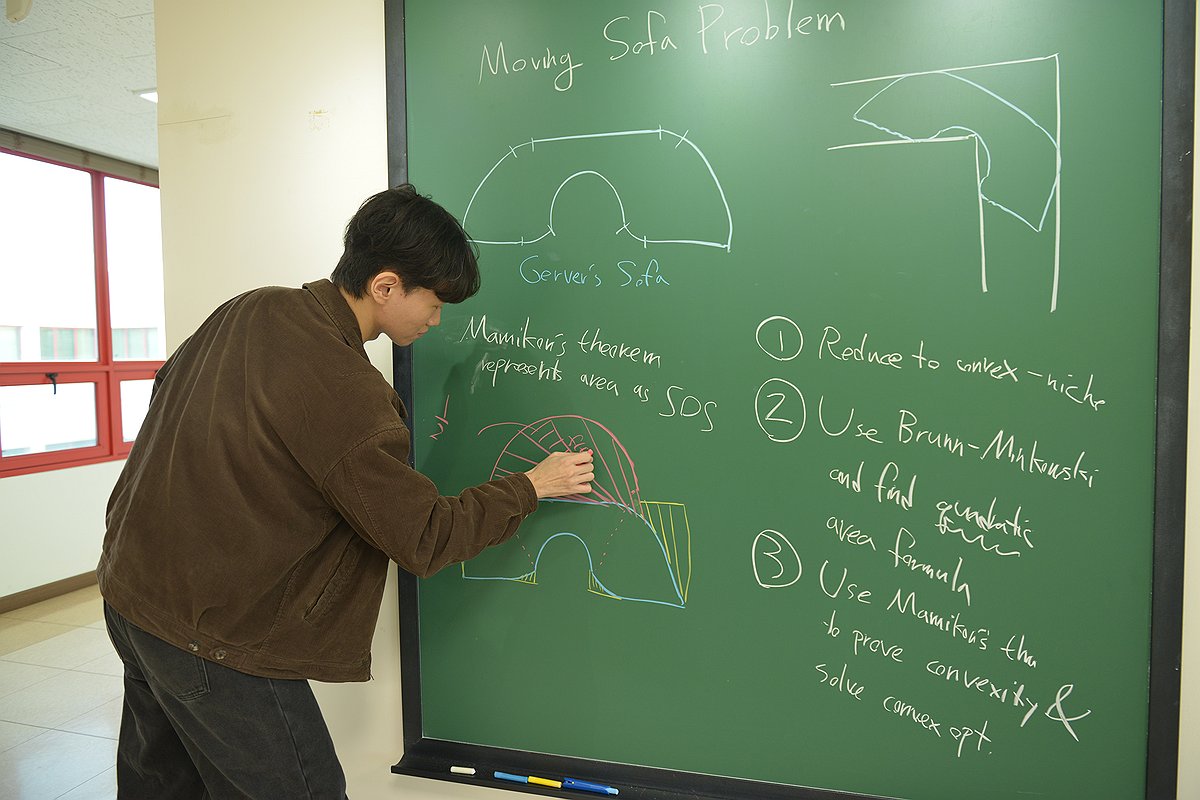 Moving Sofa Problem
Gerver's Sofa
Mamikon's theorem
represents area as SOS
① Reduce to convex-niche
② Use Brunn-Minkowski
and find quadratic
area formula
③ Use Mamikon's thm
to prove convexity &
solve convex opt.